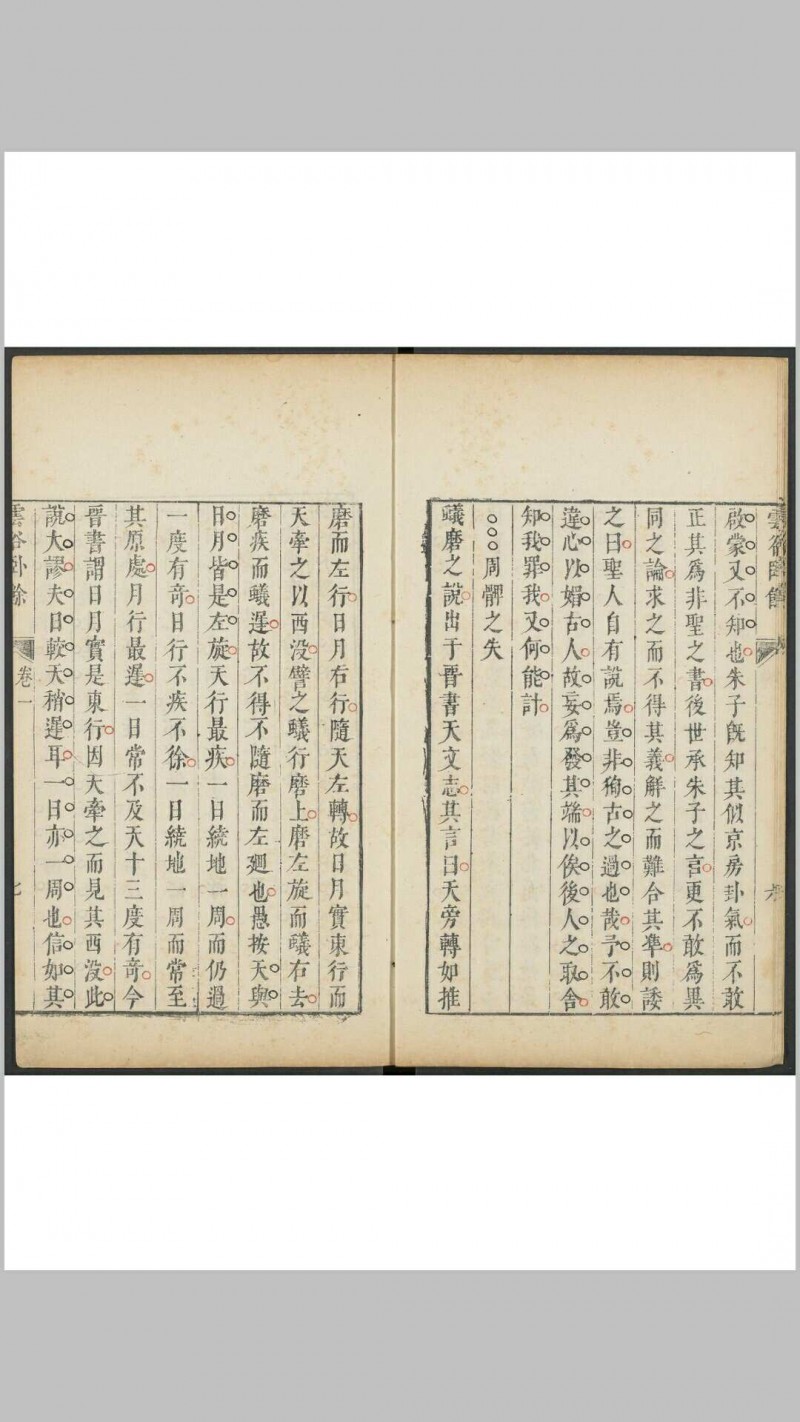 啟蒙又不知也朱子既知其似京房卦氣而不敢
正其爲非聖之書後世承朱子之言更不敢爲異
同之論求之而不得其義解之而難合其凖則諉
之曰聖人自有說焉豈非狥古之過也哉予不敢
違心以媚古人故妄爲發其端以俟後人之取舍
知我罪我又何能計
○○○周髀之失
蟻磨之說出于晋書天文志其言曰天旁轉如推
磨而左行日月右行隨天左轉故日月實東行而
天牽之以西沒譬之蟻行磨上磨左旋而蟻右去
磨疾而蟻遲故不得不隨磨而左廻也愚按天與
日月皆是左旋天行最疾一日繞地一周而仍過
一度有竒日行不疾不徐一日繞地一周而常至
其原處月行最遲一日常不及天十三度有竒今
晋書謂日月實是東行因天牽之而見其西沒此
說大謬夫日較天稍遲耳一日亦一周也信如其
雲谷卧餘 卷一 七